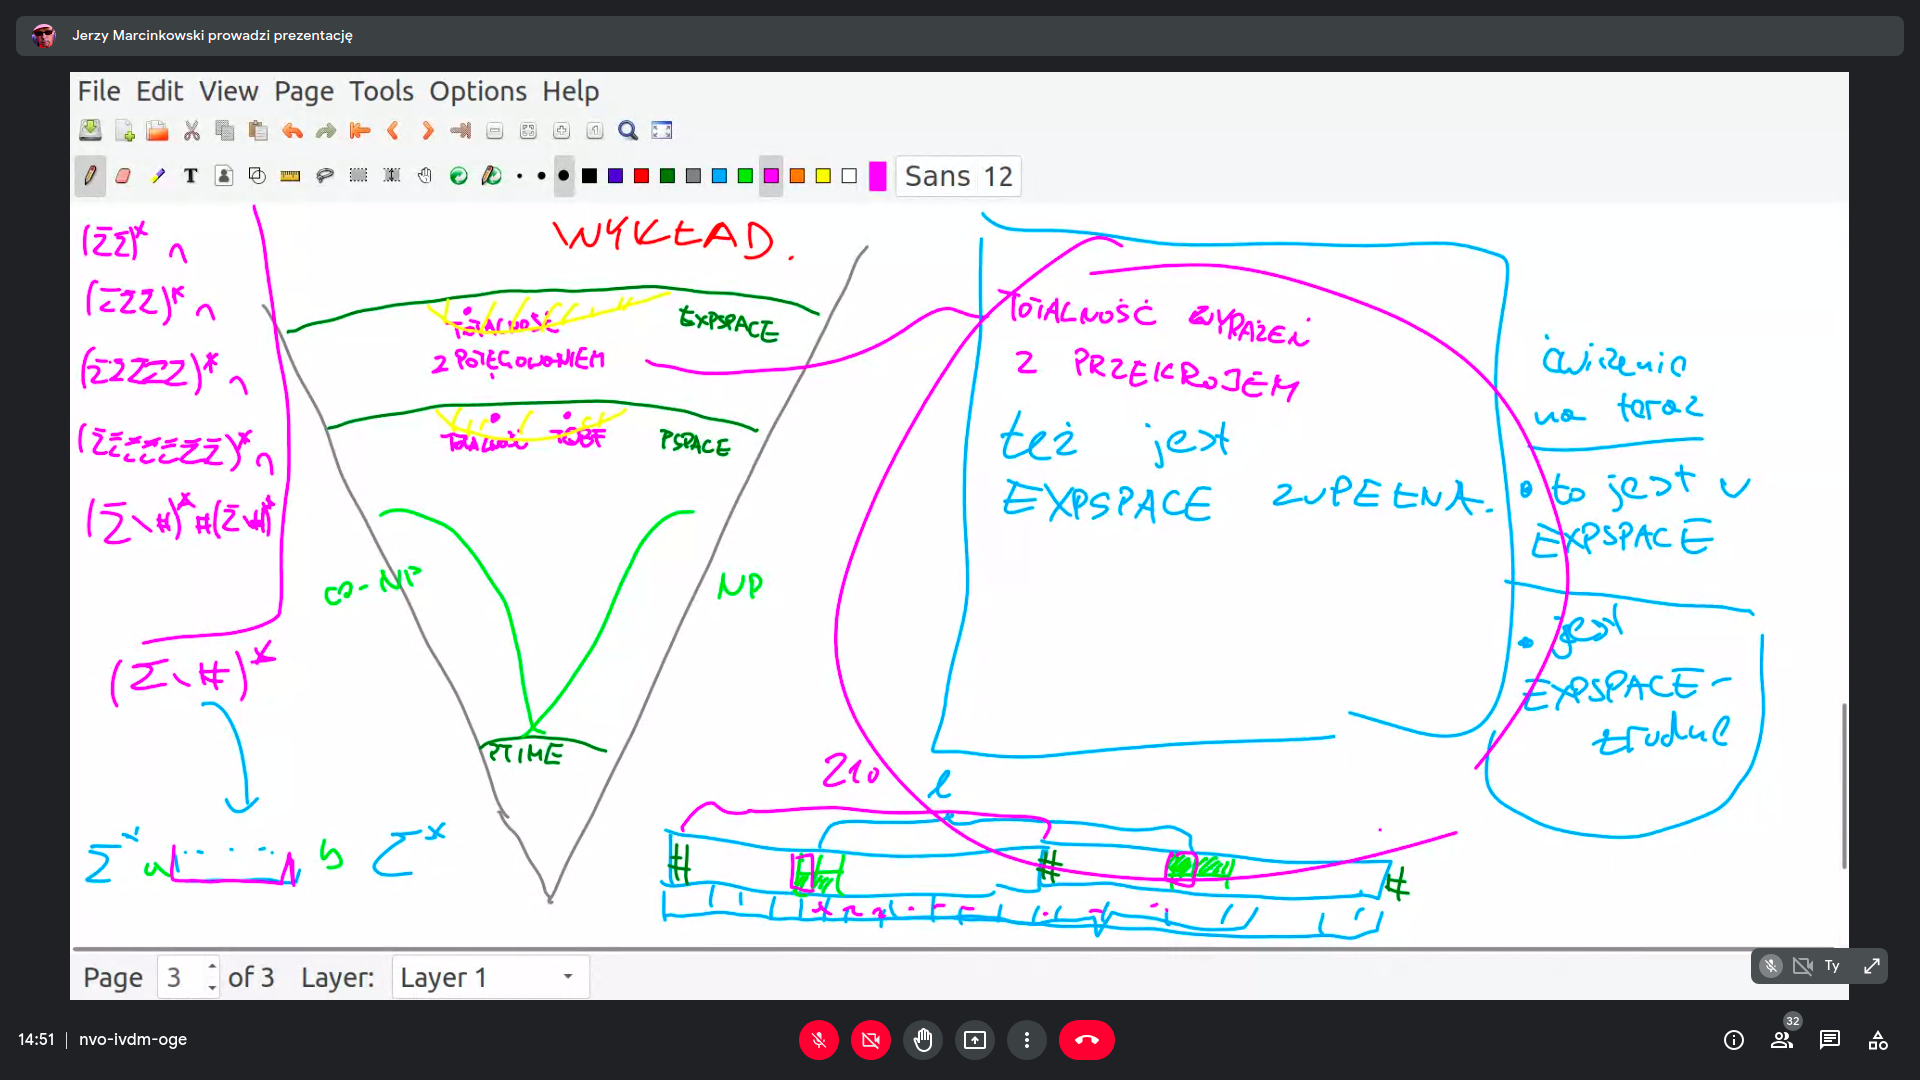 Jerzy Marcinkowski prowadzi prezentację
File Edit View Page Tools Options Help
Sans 12
(ΣΣ)* ∩
(ΣΣΣ)* ∩
(ΣΣΣΣΣ)* ∩
(ΣΣΣΣΣΣΣ)* ∩
(Σ\#)*#(Σ\#)*
(Σ\#)*
Σ* a
b Σ*
WYKŁAD.
TOTALNOŚĆ
Z POTĘGOWANIEM
EXPSPACE
TOTALNOŚĆ TQBF
PSPACE
co-NP
NP
PTIME
TOTALNOŚĆ WYRAŻEŃ
Z PRZEKROJEM
też jest
EXPSPACE ZUPEŁNA.
ćwiczenie
na teraz
• to jest w
EXPSPACE
• jest
EXPSPACE-
trudne
210
l
# # #
Page 3 of 3 Layer: Layer 1
Ty
14:51 | nvo-ivdm-oge
32